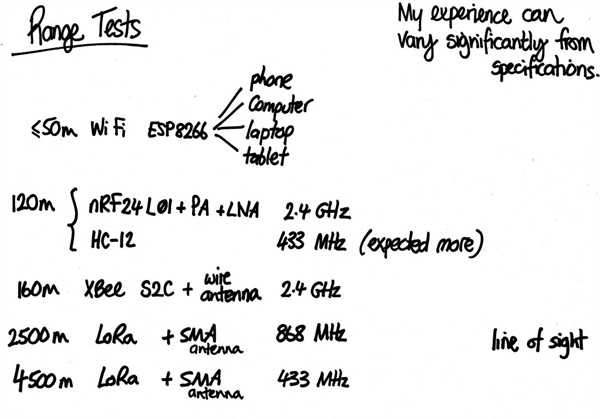 Range Tests
My experience can
vary significantly from
specifications.
≤50m WiFi ESP8266
phone
Computer
laptop
tablet
120m { nRF24L01 + PA + LNA 2.4 GHz
HC-12 433 MHz (expected more)
160m XBee S2C + wire antenna 2.4 GHz
2500m LoRa + SMA antenna 868 MHz line of sight
4500m LoRa + SMA antenna 433 MHz